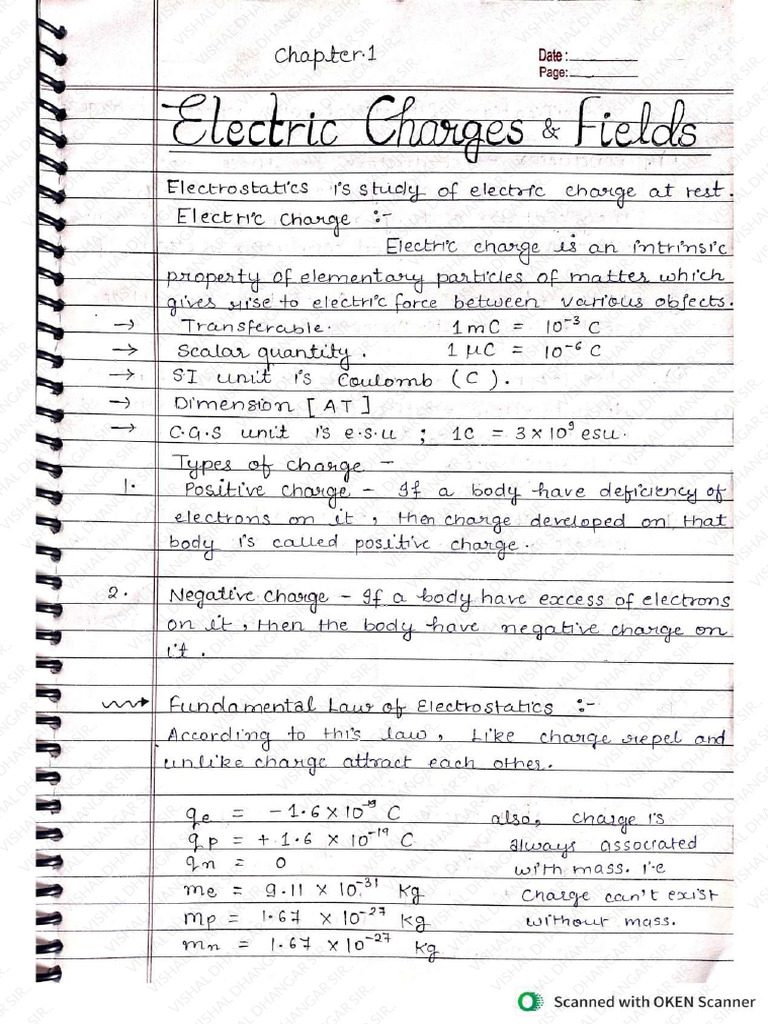 Chapter.1
Date:
Page:
Electric Charges & Fields
Electrostatics is study of electric charge at rest.
Electric charge :-
Electric charge is an intrinsic
property of elementary particles of matter which
gives rise to electric force between various objects.
→ Transferable. 1 mC = 10⁻³ C
→ Scalar quantity. 1 μC = 10⁻⁶ C
→ SI unit is Coulomb (C).
→ Dimension [AT]
→ C.G.S unit is e.s.u ; 1C = 3 × 10⁹ esu.
Types of charge -
1. Positive charge - If a body have deficiency of
electrons on it, then charge developed on that
body is called positive charge.
2. Negative charge - If a body have excess of electrons
on it, then the body have negative charge on
it.
Fundamental Law of Electrostatics :-
According to this law, Like charge repel and
unlike charge attract each other.
qe = -1.6 × 10⁻¹⁹ C also, charge is
qp = +1.6 × 10⁻¹⁹ C always associated
qn = 0 with mass. i.e
me = 9.11 × 10⁻³¹ kg charge can't exist
mp = 1.67 × 10⁻²⁷ kg without mass.
mn = 1.67 × 10⁻²⁷ kg
VISHAL DHANGAR SIR
Scanned with OKEN Scanner